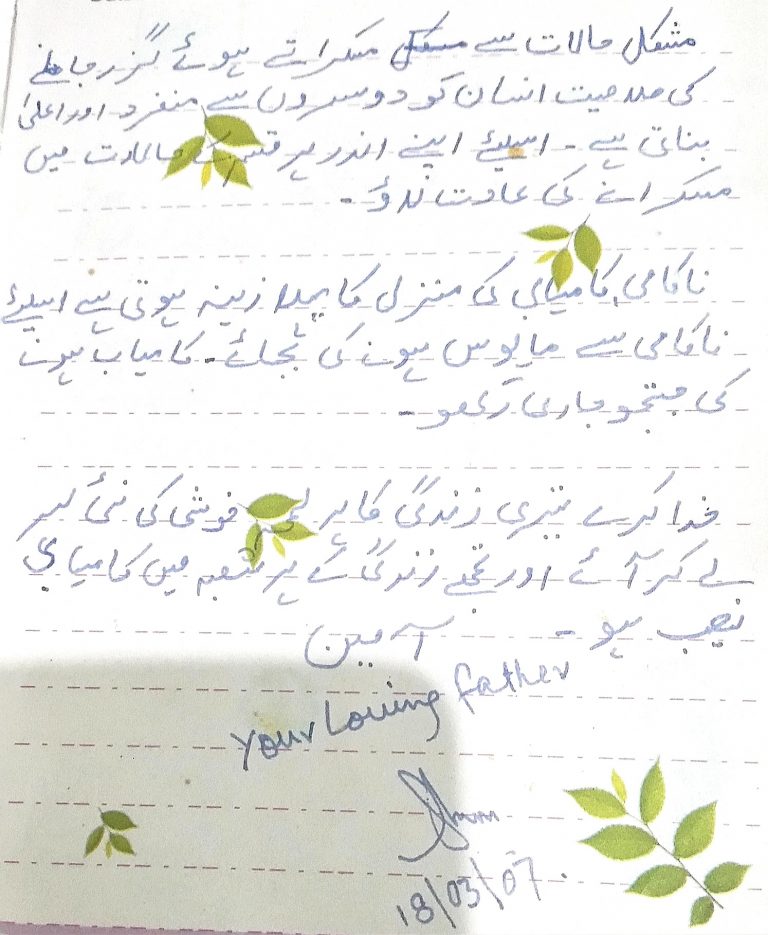 مشکل حالات سے مسکراتے ہوئے گزر جانے
کی صلاحیت انسان کو دوسروں سے منفرد اور اعلیٰ
بناتی ہے۔ اسلئے اپنے اندر ہر قسم کے حالات میں
مسکرانے کی عادت ڈالو۔
ناکامی کامیابی کی منزل کا پہلا زینہ ہوتی ہے اسلئے
ناکامی سے مایوس ہونے کی بجائے۔ کامیاب ہونے
کی جستجو جاری رکھو۔
خدا کرے تیری زندگی کا ہر لمحہ خوشی کی نئی لہر
لے کر آئے اور تجھے زندگی کے ہر شعبہ میں کامیابی
نصیب ہو۔ آمین
Your Loving father
18/03/07.